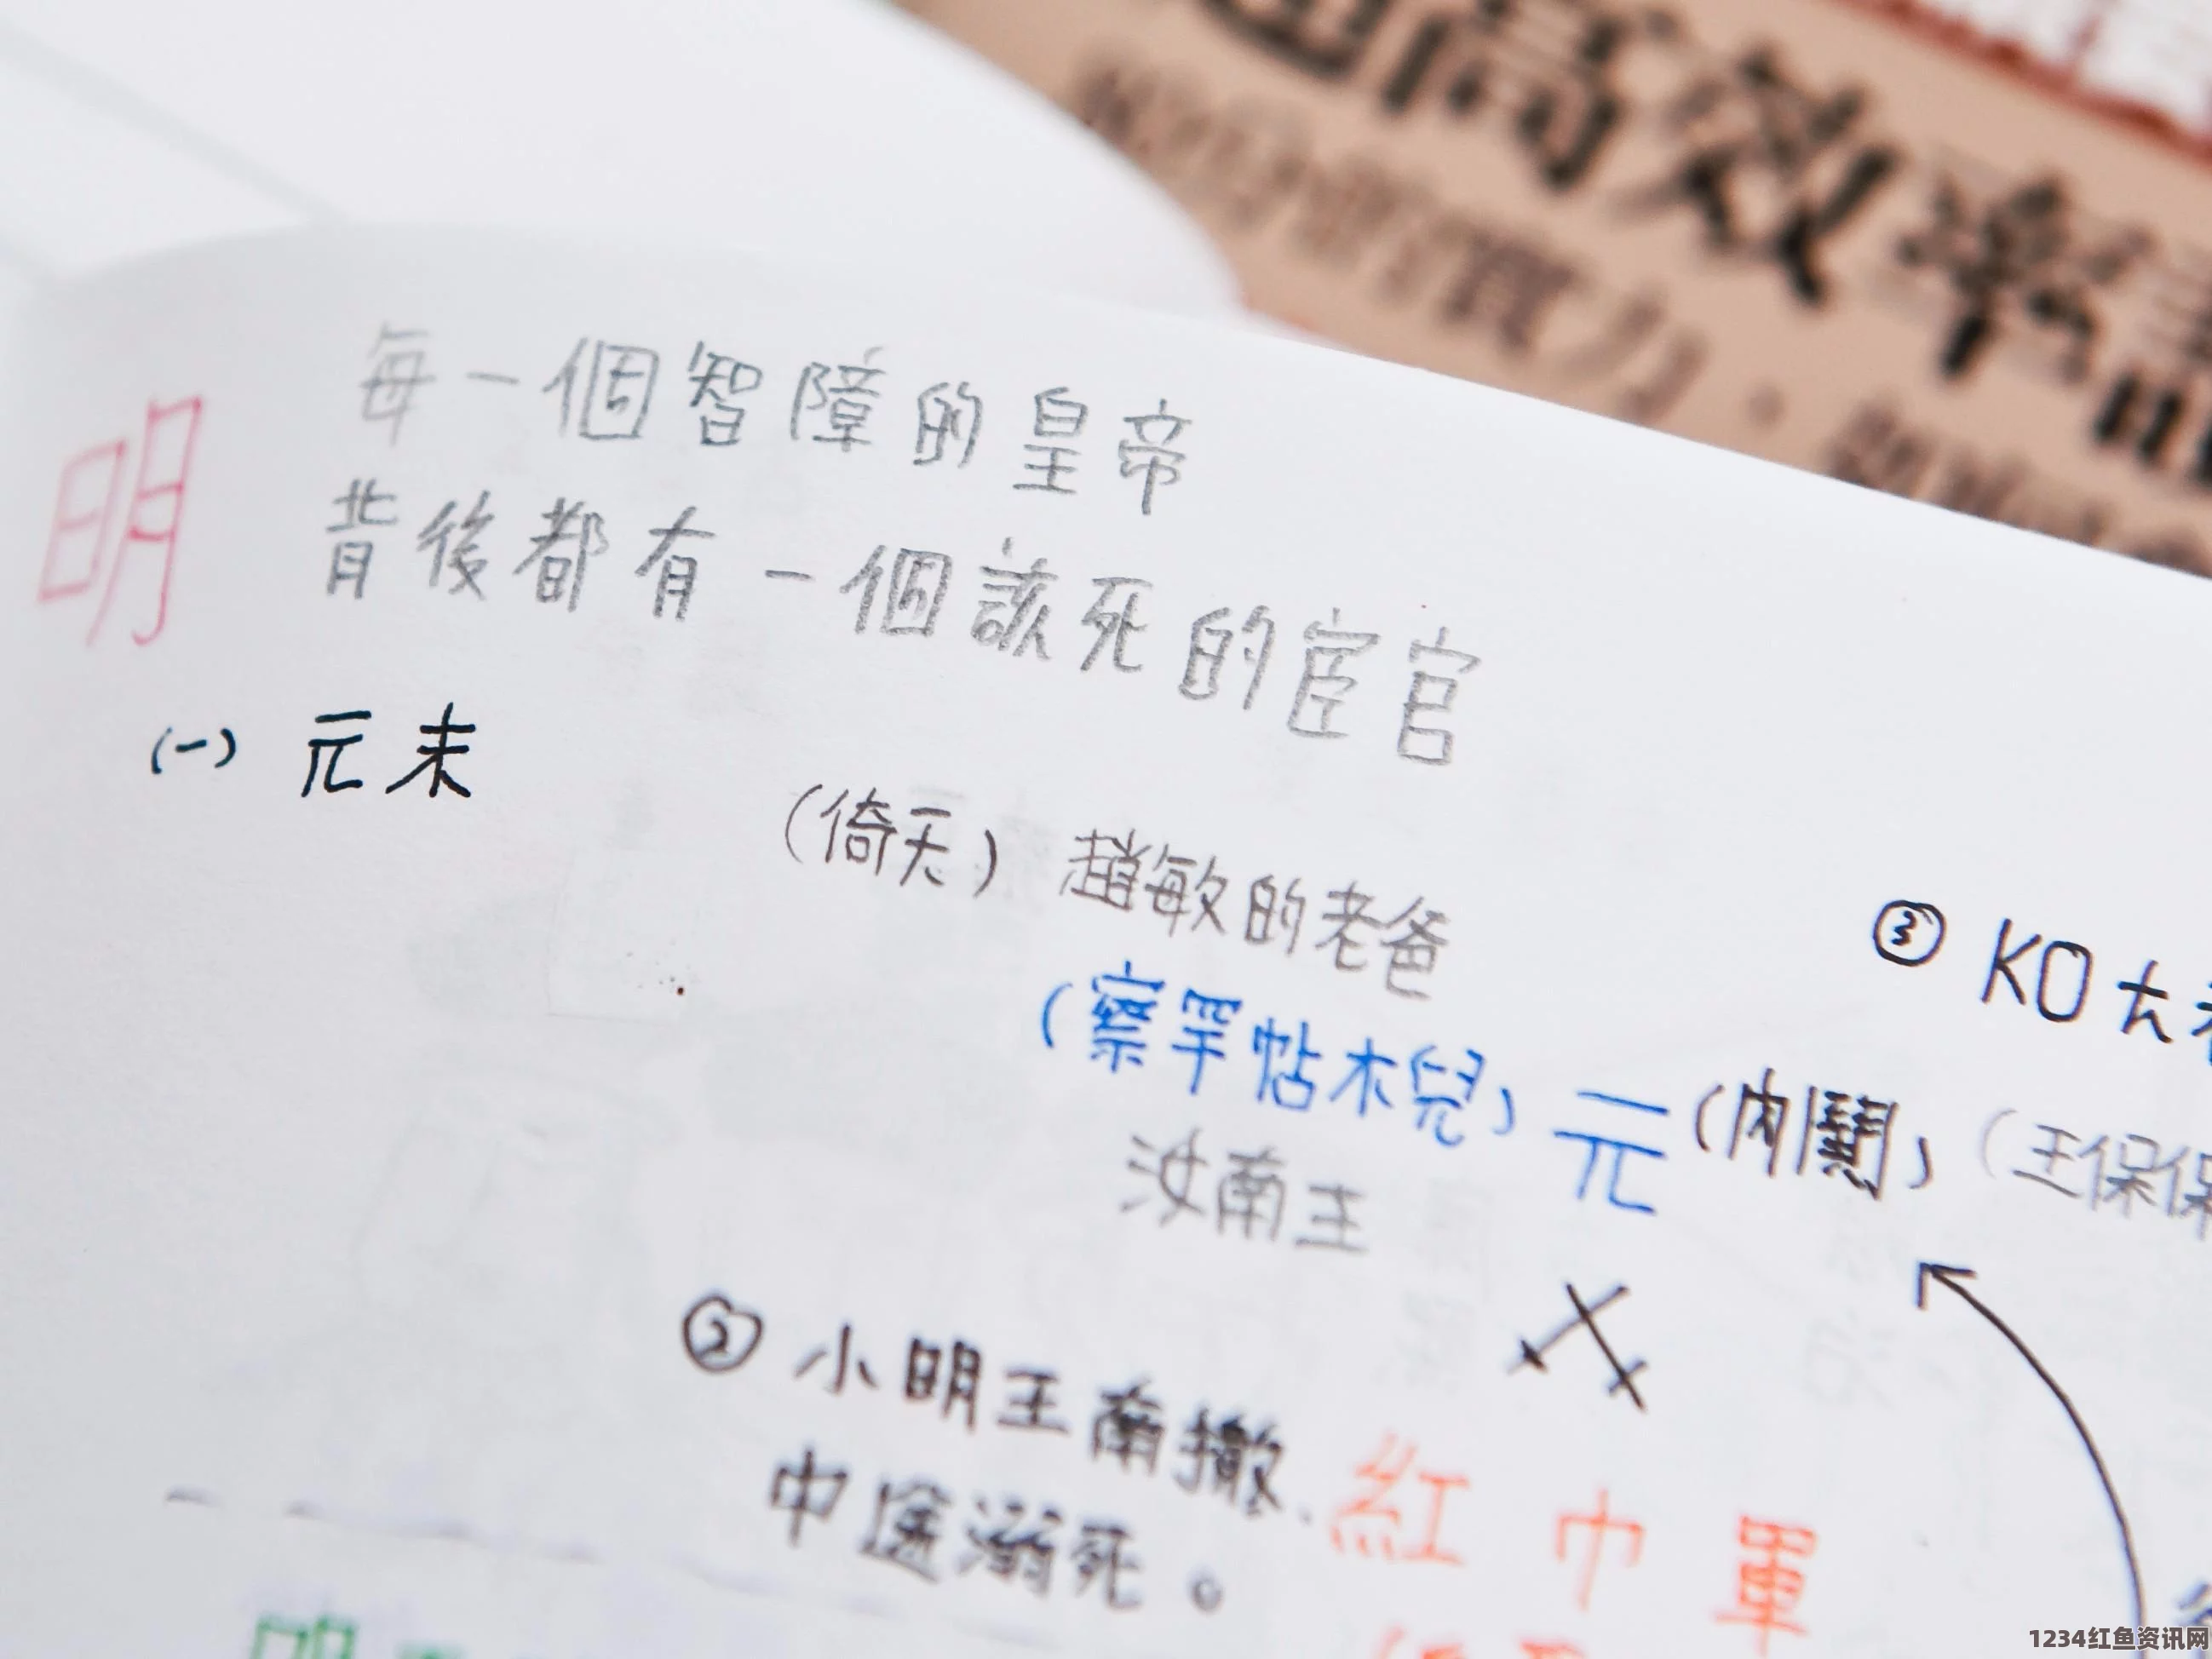 高效率
實力。
明
每一個智障的皇帝
背後都有一個該死的宦官
(一) 元末
(倚天) 趙敏的老爸
(察罕帖木兒) 元 (內鬨) (王保保
汝南王
③ KO大
② 小明王南撤
中途溺死。
紅巾軍
1234红鱼资讯网